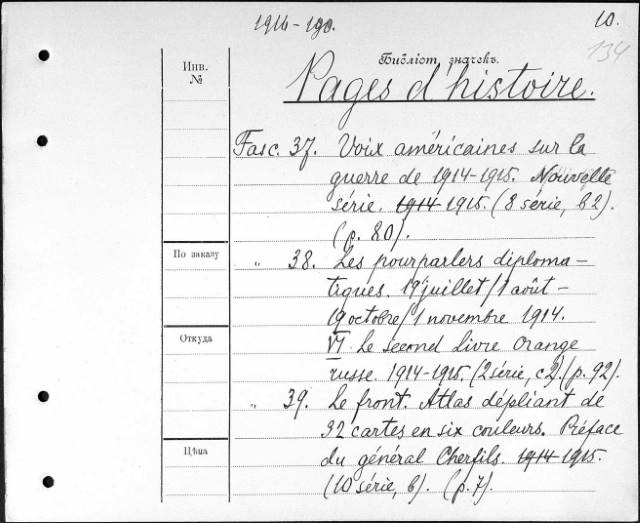 1914-190.
10.
134
Библіот. значекъ.
Инв.
№
Pages d'histoire.
Fasc. 37. Voix américaines sur la
guerre de 1914-1915. Nouvelle
série. 1914-1915. (8 série, b2).
(p. 80).
По заказу
" 38. Les pourparlers diploma-
tiques. 19 juillet/1 août -
19 octobre/1 novembre 1914.
Откуда
VI. Le second Livre orange
russe. 1914-1915. (2 série, c2) (p. 92).
" 39. Le front. Atlas dépliant de
32 cartes en six couleurs. Préface
Цѣна
du général Cherfils. 1914-1915.
(10 série, b). (p. 7).